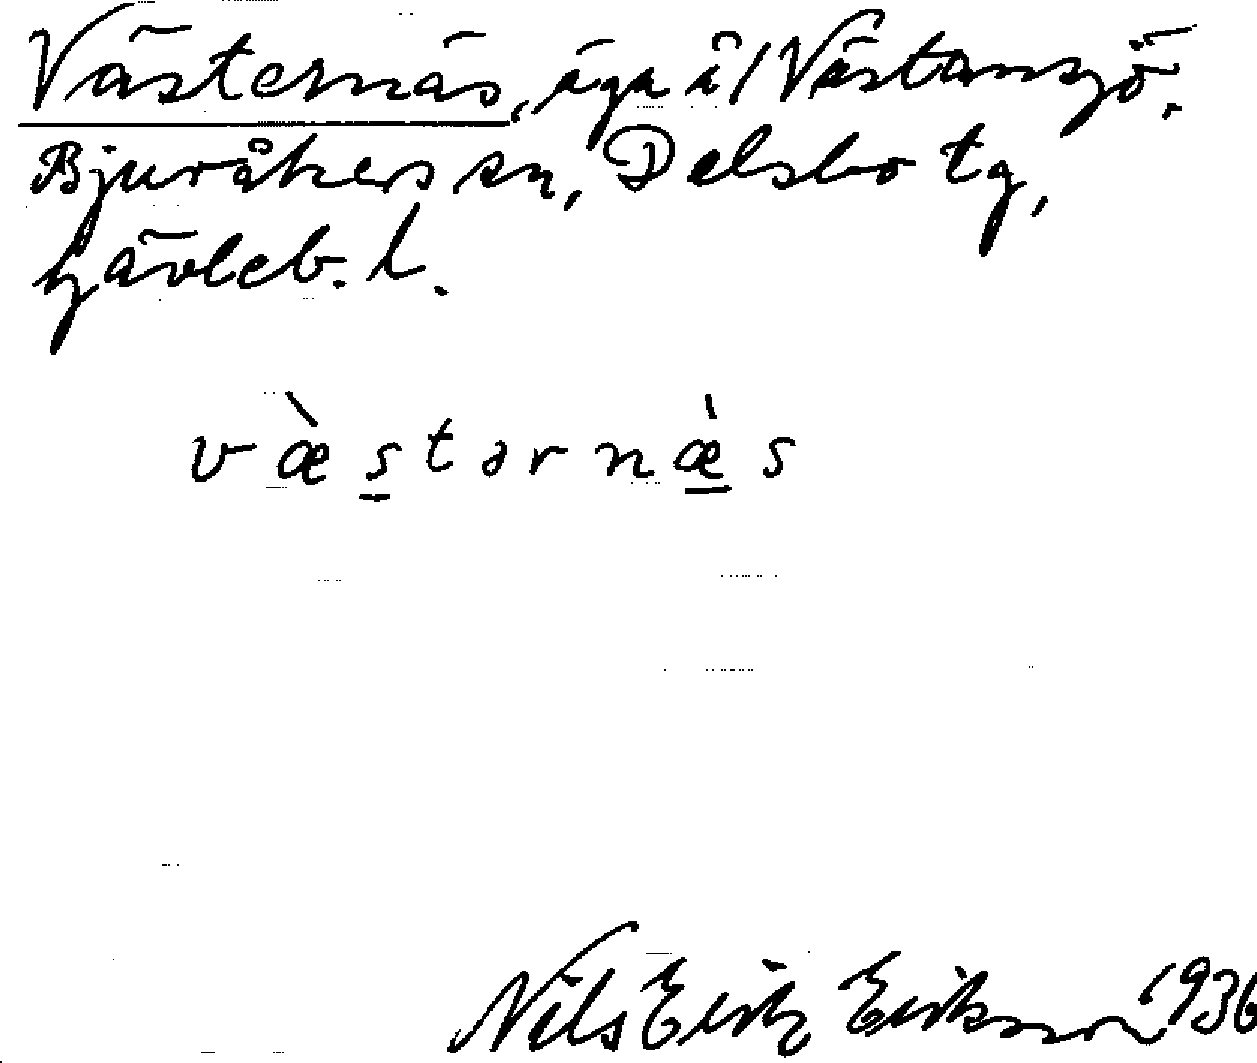 Västernäs, äga å/Västansjö.
Bjuråkers sn, Delsbo tg,
Gävleb. l.
væ̀stərnæ̀s
Nils Erik Erikson 1936